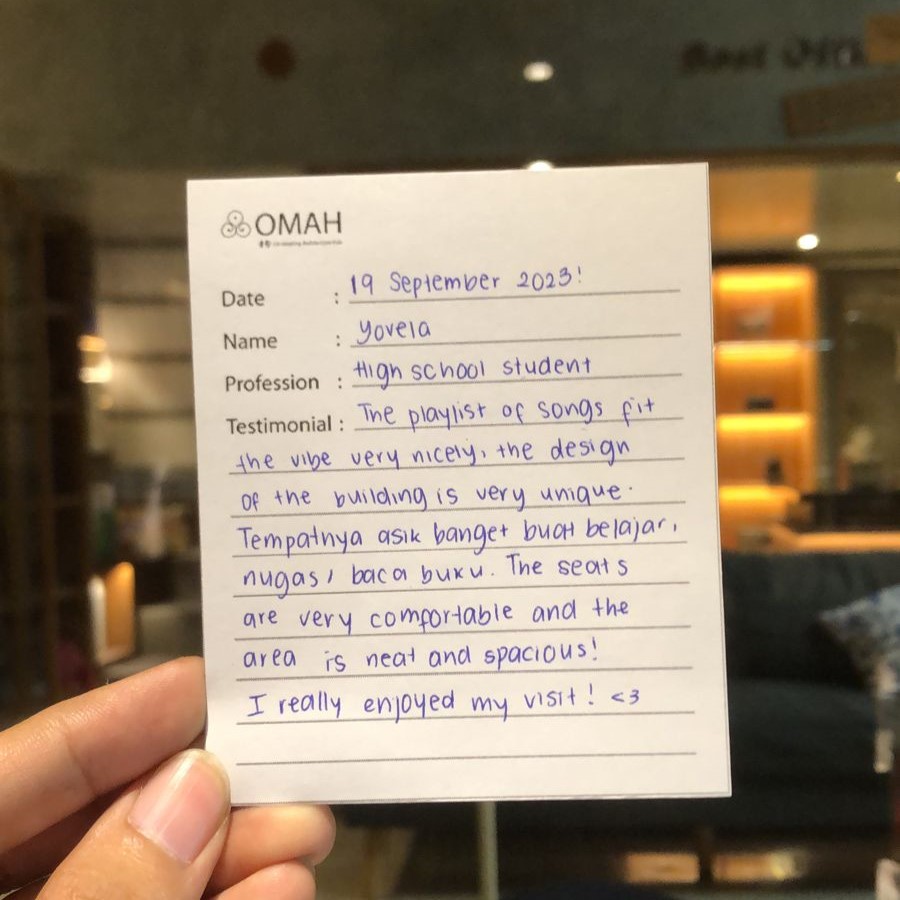 OMAH
Date : 19 September 2023!
Name : Yovela
Profession : High school student
Testimonial : The playlist of songs fit
the vibe very nicely, the design
of the building is very unique.
Tempatnya asik banget buat belajar,
nugas, baca buku. The seats
are very comfortable and the
area is neat and spacious!
I really enjoyed my visit! <3